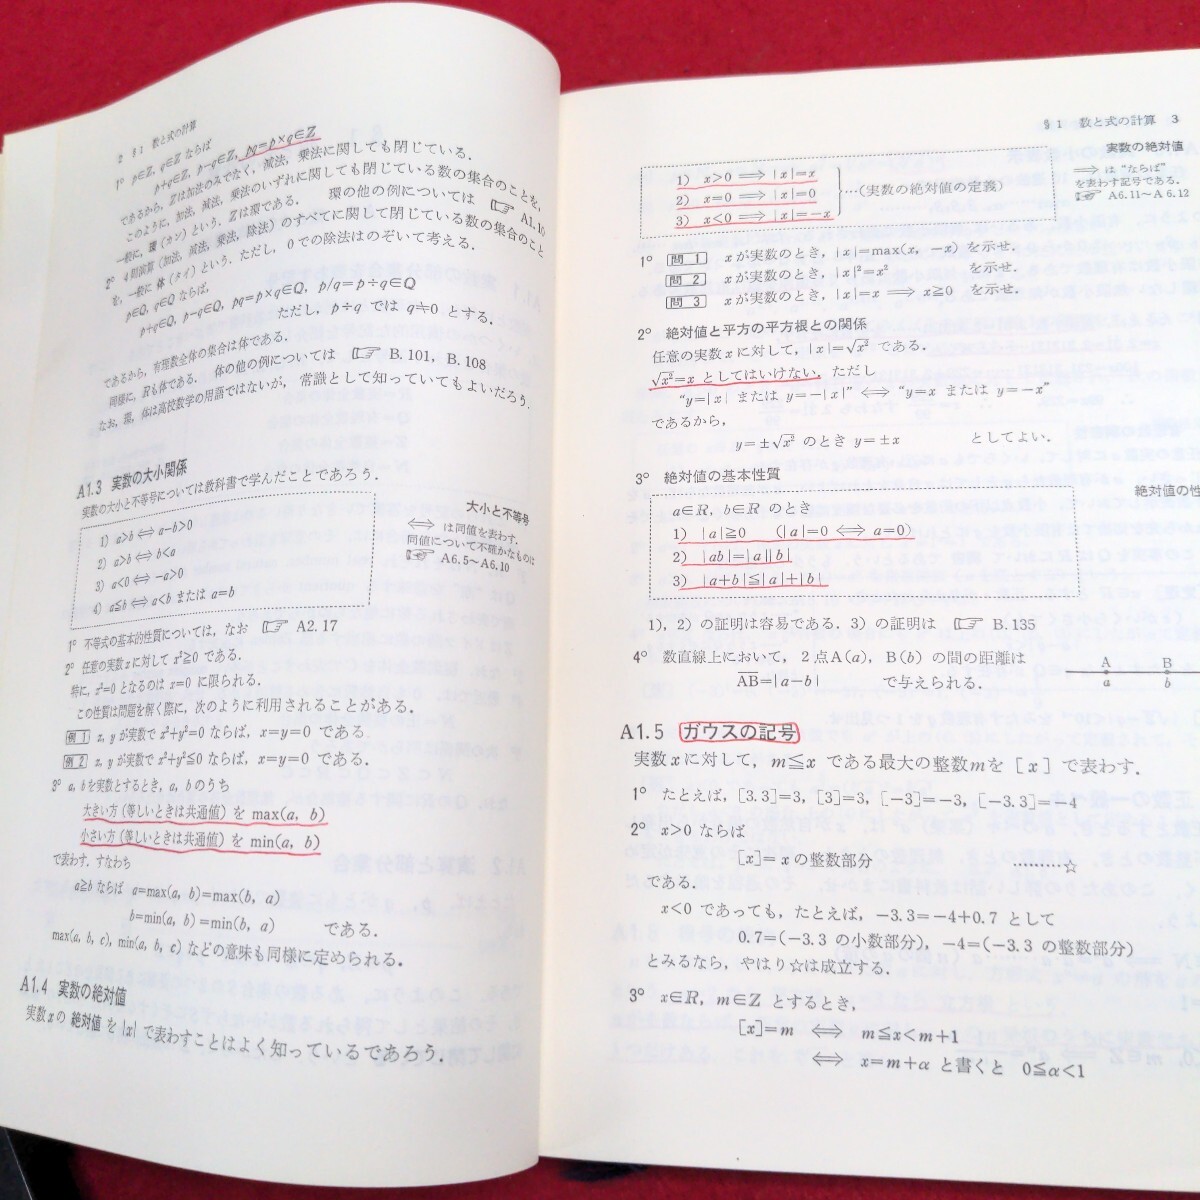 2 §1 数と式の計算
1° p∈Z, q∈Z ならば
p+q∈Z, p−q∈Z, pq=p×q∈Z
であるから, Zは加法のみでなく, 減法, 乗法に関しても閉じている.
このように, 加法, 減法, 乗法のいずれに関しても閉じている数の集合のことを,
一般に, 環 (カン) という. Zは環である. 環の他の例については ☞ A1.10
2° 4則演算 (加法, 減法, 乗法, 除法) のすべてに関して閉じている数の集合のこと
を, 一般に 体 (タイ) という. ただし, 0での除法はのぞいて考える.
p∈Q, q∈Q ならば,
p+q∈Q, p−q∈Q, pq=p×q∈Q, p/q=p÷q∈Q
ただし, p÷q では q≠0 とする.
であるから, 有理数全体の集合は体である.
同様に, Rも体である. 体の他の例については ☞ B.101, B.108
なお, 環, 体は高校数学の用語ではないが, 常識として知っていてもよいだろう.
A1.3 実数の大小関係
実数の大小と不等号については教科書で学んだことであろう.
1) a>b⟺a−b>0
2) a>b⟺b<a
3) a<0⟺−a>0
4) a≦b⟺a<b または a=b
大小と不等号
⟺ は同値を表わす.
同値について不確かなものは
☞ A6.5〜A6.10
1° 不等式の基本的性質については, なお ☞ A2.17
2° 任意の実数xに対して x²≧0 である.
特に, x²=0 となるのは x=0 に限られる.
この性質は問題を解く際に, 次のように利用されることがある.
例 1 x, y が実数で x²+y²=0 ならば, x=y=0 である.
例 2 x, y が実数で x²+y²≦0 ならば, x=y=0 である.
3° a, bを実数とするとき, a, bのうち
大きい方 (等しいときは共通値) を max(a, b)
小さい方 (等しいときは共通値) を min(a, b)
で表わす. すなわち
a≧b ならば a=max(a, b)=max(b, a)
b=min(a, b)=min(b, a) である.
max(a, b, c), min(a, b, c) などの意味も同様に定められる.
A1.4 実数の絶対値
実数xの 絶対値 を |x| で表わすことはよく知っているであろう.
§1 数と式の計算 3
1) x>0 ⟹ |x|=x
2) x=0 ⟹ |x|=0
3) x<0 ⟹ |x|=−x
…(実数の絶対値の定義)
実数の絶対値
⟹ は “ならば”
を表わす記号である.
☞ A6.11〜A6.12
1° 問 1 xが実数のとき, |x|=max(x, −x) を示せ.
問 2 xが実数のとき, |x|²=x² を示せ.
問 3 xが実数のとき, |x|=x ⟹ x≧0 を示せ.
2° 絶対値と平方の平方根との関係
任意の実数xに対して, |x|=√x² である.
√x²=x としてはいけない. ただし
“y=|x| または y=−|x|” ⟺ “y=x または y=−x”
であるから,
y=±√x² のとき y=±x としてよい.
3° 絶対値の基本性質
絶対値の性
a∈R, b∈R のとき
1) |a|≧0 (|a|=0 ⟺ a=0)
2) |ab|=|a||b|
3) |a+b|≦|a|+|b|
1), 2) の証明は容易である. 3) の証明は ☞ B.135
4° 数直線上において, 2点A(a), B(b) の間の距離は
AB=|a−b| で与えられる.
A B
a b
A1.5 ガウスの記号
実数xに対して, m≦x である最大の整数mを [x] で表わす.
1° たとえば, [3.3]=3, [3]=3, [−3]=−3, [−3.3]=−4
2° x>0 ならば
[x]= xの整数部分 ………☆
である.
x<0 であっても, たとえば, −3.3=−4+0.7 として
0.7=(−3.3 の小数部分), −4=(−3.3 の整数部分)
とみるなら, やはり☆は成立する.
3° x∈R, m∈Z とするとき,
[x]=m ⟺ m≦x<m+1
⟺ x=m+α と書くと 0≦α<1